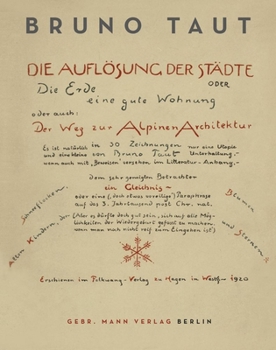 BRUNO TAUT
DIE AUFLÖSUNG DER STÄDTE
ODER
Die Erde
eine gute Wohnung
oder auch:
Der Weg zur Alpinen Architektur
in 30 Zeichnungen
von Bruno Taut
Es ist natürlich nur eine Utopie
und eine kleine Unterhaltung –
wenn auch mit „Beweisen“ versehen im Litteratur-Anhang. –
dem sehr geneigten Betrachter
ein Gleichnis –
oder eine (doch etwas voreilige) Paraphrase
auf das 3. Jahrtausend post Chr. nat.
(Aber es dürfte doch gut sein, sich auf alle Mög-
lichkeiten der Wiedergeburt gefasst zu machen,
wenn man noch nicht reif zum Eingehen ist)
Allen Kindern, den Sonnefischen, Blumen und Sternen
Erschienen im Folkwang-Verlag zu Hagen in Westf. – 1920
GEBR. MANN VERLAG BERLIN